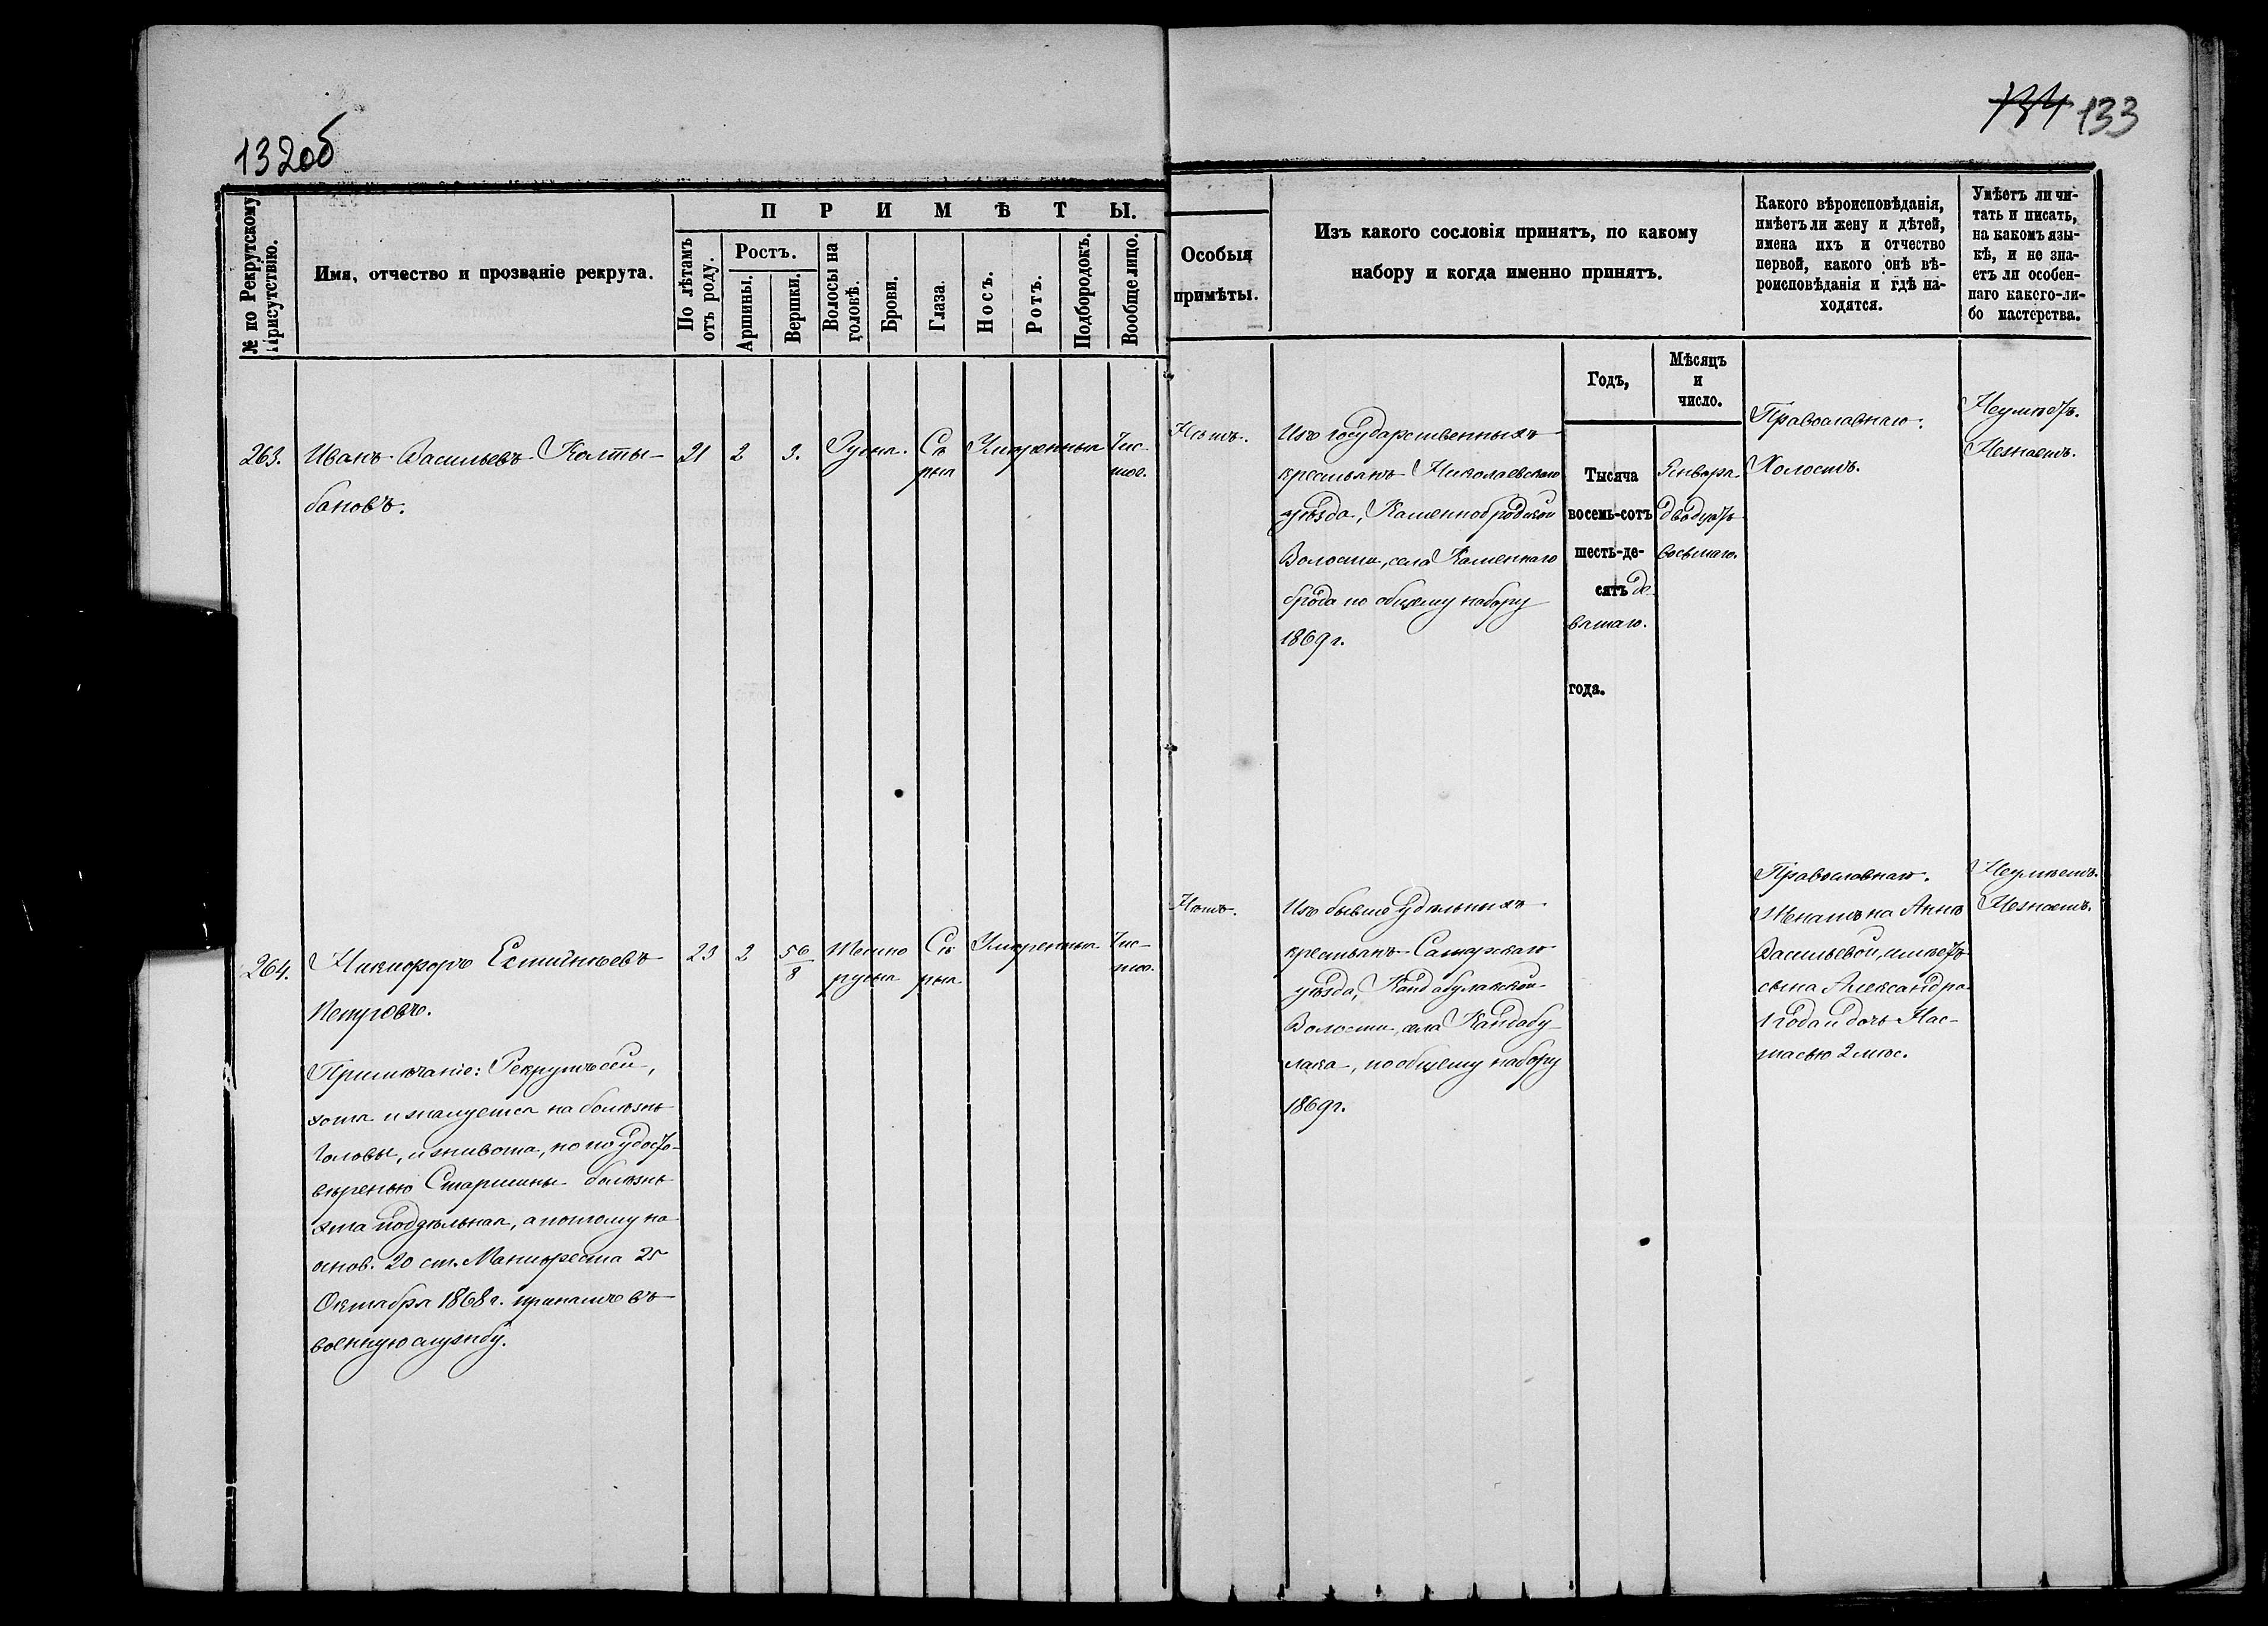 132об
134 133
№ по Рекрутскому Присутствію.
Имя, отчество и прозваніе рекрута.
ПРИМѢТЫ.
По лѣтамъ отъ роду.
Ростъ.
Аршины.
Вершки.
Волосы на головѣ.
Брови.
Глаза.
Носъ.
Ротъ.
Подбородокъ.
Вообще лицо.
Особыя
примѣты.
Изъ какого сословія принятъ, по какому
набору и когда именно принятъ.
Годъ,
Мѣсяцъ
и
число.
Какого вѣроисповѣданія,
имѣетъ ли жену и дѣтей,
имена ихъ и отчество
первой, какого онѣ вѣ-
роисповѣданія и гдѣ на-
ходятся.
Умѣетъ ли чи-
тать и писать,
на какомъ язы-
кѣ, и не зна-
етъ ли особен-
наго какого-ли-
бо мастерства.
263.
Иванъ Васильевъ Колты-
бановъ.
21
2
3.
Русыя.
Сѣ
рыя
Умѣренныя
Чис-
тое.
Нѣтъ.
Изъ государственныхъ
крестьянъ Николаевскаго
уѣзда, Каменнобродской
Волости, села Каменнаго
брода по общему набору
1869 г.
Тысяча
восемь-сотъ
шесть-де-
сятъ де-
вятаго.
года.
Января
двадцать
восьмаго.
Православнаго.
Холостъ.
Неумѣетъ.
Незнаетъ.
264.
Никифоръ Естифѣевъ
Петровъ.
23
2
5 6/8
Темно
русыя
Сѣ
рыя
Умѣренныя
Чис-
тое.
Примѣчаніе: Рекрутъ сей,
хотя и жалуется на болѣзнь
головы, и живота, но по удосто-
вѣренію Старшины болѣзнь
эта поддѣльная, а потому на
основ. 20 ст. Манифеста 25
Октября 1868 г. принятъ въ
военную службу.
Нѣтъ.
Изъ бывше удѣльныхъ
крестьянъ Самарскаго
уѣзда, Кандабулакской
Волости, села Кандабу-
лака, по общему набору
1869 г.
Православнаго.
Женатъ на Аннѣ
Васильевой, имѣетъ
сына Александра
1 года и дочь Нас-
тасью 2 мѣс.
Неумѣетъ.
Незнаетъ.